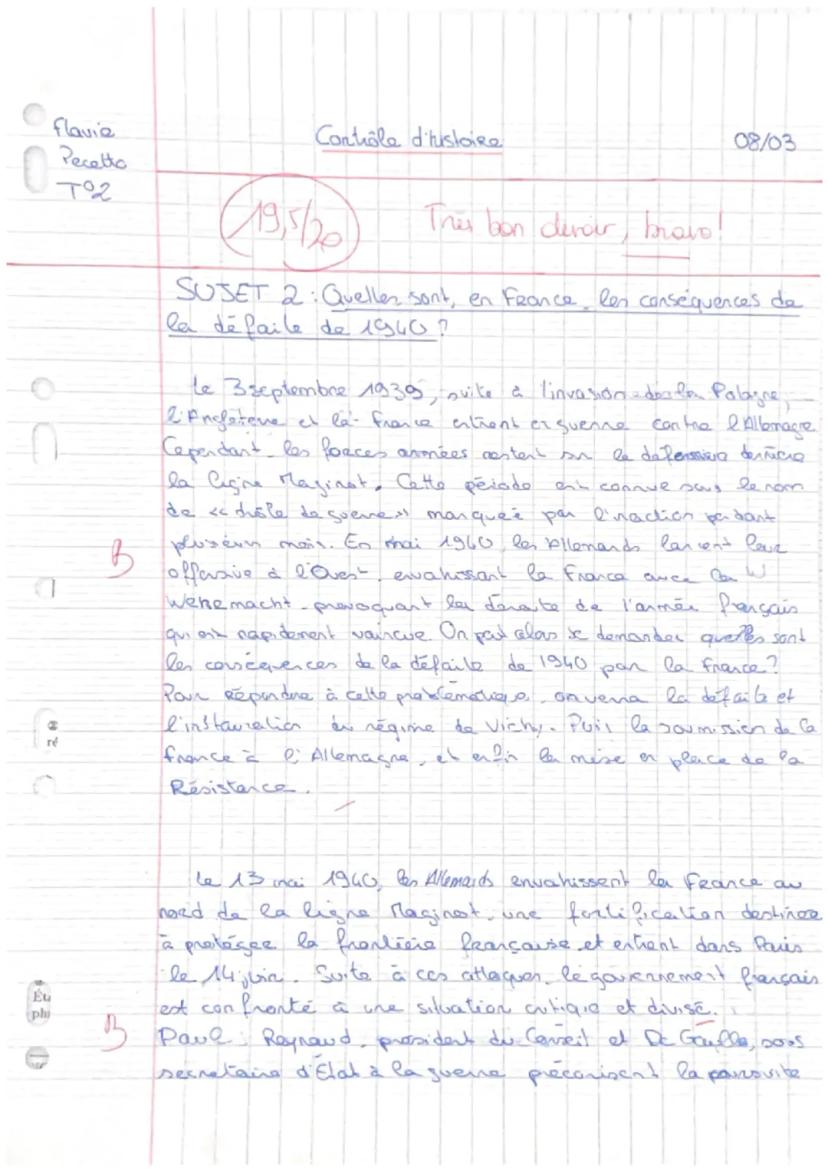 Flavie
Pecetto
T°2
Contrôle d'histoire
08/03
19,5/20
Très bon devoir, bravo!
SUJET 2 : Quelles sont, en France, les conséquences de
la défaite de 1940?
Le 3 septembre 1939, suite à l'invasion de la Pologne,
l'Angleterre et la France entrent en guerre contre l'Allemagne
Cependant les forces armées restent sur la défensive derrière
la ligne Maginot. Cette période est connue sous le nom
de << drôle de guerre >> marquée par l'inaction pendant
plusieurs mois. En mai 1940, les Allemands lancent leur
B
offensive à l'Ouest, envahissant la France avec la W
Wehrmacht provoquant la déroute de l'armée français
qui est rapidement vaincue. On peut alors se demander quelles sont
les conséquences de la défaite de 1940 par la France?
Pour répondre à cette problématique, on verra la défaite et
l'instauration du régime de Vichy. Puis la soumission de la
France à l'Allemagne, et enfin la mise en place de la
Résistance.
Le 13 mai 1940, les Allemands envahissent la France au
nord de la ligne Maginot, une fortification destinée
à protéger la frontière française et entrent dans Paris
le 14 juin. Suite à ces attaques, le gouvernement français
est confronté à une situation critique et divisé.
B
Paul Reynaud, président du Conseil et De Gaulle, sous
secrétaire d'État à la guerre préconisent la poursuite
ré
Éu
phi